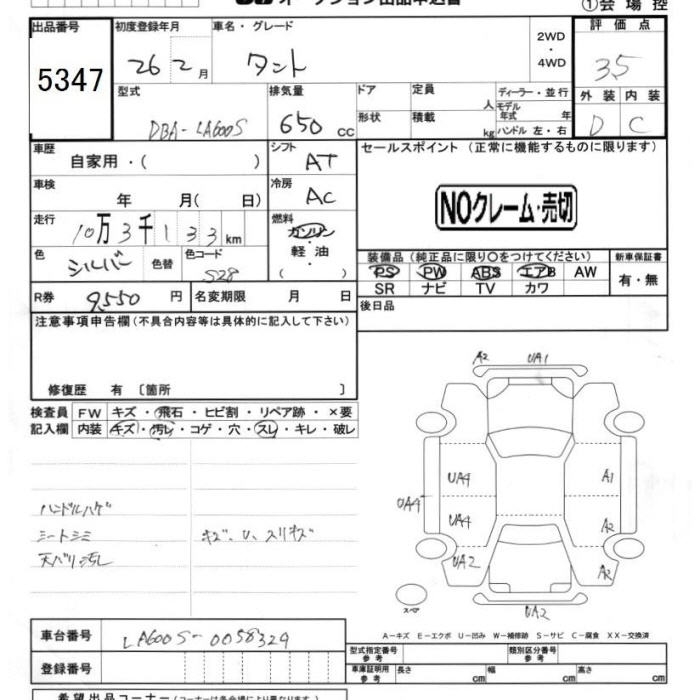 オークション出品申込書
①会場控
出品番号
5347
初度登録年月
26 2月
車名・グレード
タント
2WD
・
4WD
評価点
3.5
型式
DBA-LA600S
排気量
650 cc
ドア
形状
定員 人
積載 kg
ディーラー・並行
モデル年式 年
ハンドル 左・右
外装 内装
D C
車歴
自家用・( )
シフト
AT
セールスポイント (正常に機能するものに限ります)
車検
年 月( 日)
冷房
AC
NOクレーム・売切
走行
10万3千133km
燃料
ガソリン
・
軽油
・
( )
色
シルバー
色替
色コード
S28
装備品 (純正品に限り○をつけてください)
PS PW ABS エアB AW
SR ナビ TV カワ
新車保証書
有・無
R券 9,550円
名変期限 月 日
後日品
注意事項申告欄 (不具合内容等は具体的に記入して下さい)
修復歴 有 〔箇所 〕
検査員
記入欄
FW キズ・飛石・ヒビ割・リペア跡・×要
内装 キズ・汚レ・コゲ・穴・スレ・キレ・破レ
ハンドルハゲ
シートシミ
天バリ汚レ
キズ、U、スリキズ
A2 UA1
UA4 A1
UA4
UA4 A2
UA2 A2
スペア
UA2
A-キズ E-エクボ U-凹み W-補修跡 S-サビ C-腐食 XX-交換済
車台番号
LA600S-0058324
登録番号
型式指定番号
参考
類別区分番号
参考
車庫証明用
参考
長さ cm
幅 cm
高さ cm
希望出品コーナー